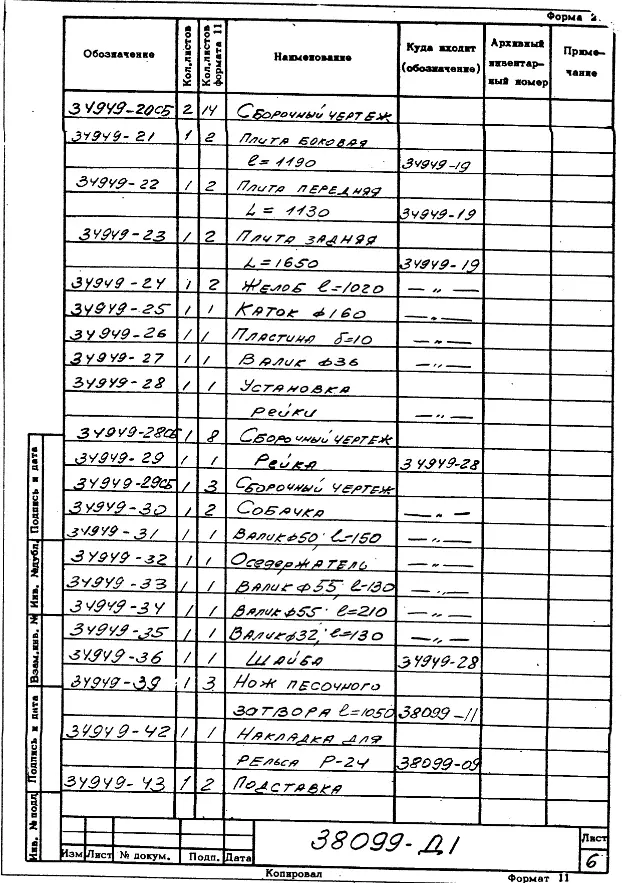 Форма 2.
Обозначение Кол.листов Кол.листов формата 11 Наименование Куда входит (обозначение) Архивный инвентарный номер Примечание
34949-20СБ 2 14 Сборочный чертеж
34949-21 1 2 Плита боковая
l=1190 34949-19
34949-22 1 2 Плита передняя
L=1130 34949-19
34949-23 1 2 Плита задняя
L=1650 34949-19
34949-24 1 2 Желоб l=1020 —〃—
34949-25 1 1 Каток ф160 —〃—
34949-26 1 1 Пластина δ=10 —〃—
34949-27 1 1 Валик ф36 —〃—
34949-28 1 1 Установка
рейки —〃—
34949-28СБ 1 8 Сборочный чертеж
34949-29 1 1 Рейка 34949-28
34949-29СБ 1 3 Сборочный чертеж
34949-30 1 2 Собачка —〃—
34949-31 1 1 Валик ф50; l=150 —〃—
34949-32 1 1 Оседержатель —〃—
34949-33 1 1 Валик ф55, l=130 —〃—
34949-34 1 1 Валик ф55 l=210 —〃—
34949-35 1 1 Валик ф32, l=130 —〃—
34949-36 1 1 Шайба 34949-28
34949-39 1 3 Нож песочного
затвора l=1050 38099-11
34949-42 1 1 Накладка для
рельса Р-24 38099-09
34949-43 1 2 Подставка
Подпись и дата
Инв. № дубл.
Взам.инв. №
Подпись и дата
Инв. № подл
38099-Д1
Лист
6
Изм Лист № докум. Подп. Дата
Копировал Формат 11